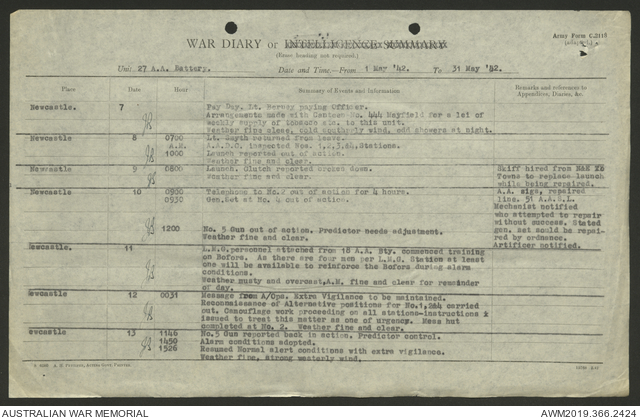 Army Form C.2118
WAR DIARY or INTELLIGENCE SUMMARY
(Erase heading not required).
Unit 27 A.A. Battery. Date and Time—From 1 May '42. To 31 May '42.
Place Date Hour Summary of Events and Information Remarks and references to Appendices, Diaries, &c.
Newcastle. 7 Pay Day, Lt. Hervey paying Officer.
Arrangements made with Canteen No. 444 Mayfield for a let of
weekly supply of tobacco etc. to this unit.
Weather fine alsee, Cold southerly wind, odd showers at night.
Newcastle. 8 0700 Lt. Smyth returned from leave.
A.M. A.A.D.C. inspected Nos. 1,2,3,&4. Stations.
1000 Launch reported out of action.
Weather fine and clear.
Newcastle 9 0800 Launch. Clutch reported broken down. Skiff hired from
Weather fine and clear. Towns to replace launch
while being repaired.
Newcastle 10 0900 Telephone to No.2 out of action for 4 hours. A.A. sigs. repaired
0930 Gen.Set at No. 4 out of action. line. 51 A.A.S.L.
Mechanist notified
who attempted to repair
without success. Stated
1200 No. 5 Gun out of action. Predictor needs adjustment. gen. set would be repair-
Weather fine and clear. ed by ordnance.
Artificer notified.
Newcastle. 11 L.M.G. personnel attached from 18 A.A. Bty. commenced training
on Bofors. As there are four men per L.M.G. Station at least
one will be available to reinforce the Bofors during alarm
conditions.
Weather musty and overcast, A.M. fine and clear for remainder
of day.
Newcastle 12 0031 Message from A/Ops. Extra Vigilance to be maintained.
Reconnaissance of Alternative positions for No.1,2&4 carried
out. Camouflage work proceeding on all stations-instructions
issued to treat this matter as one of urgency. Mess hut
completed at No. 2. Weather fine and clear.
Newcastle 13 1146 No.5 Gun reported back in action. Predictor control.
1450 Alarm conditions adopted.
1526 Resumed Normal alert conditions with extra vigilance.
Weather fine, strong westerly wind.
AUSTRALIAN WAR MEMORIAL AWM2019.366.2424